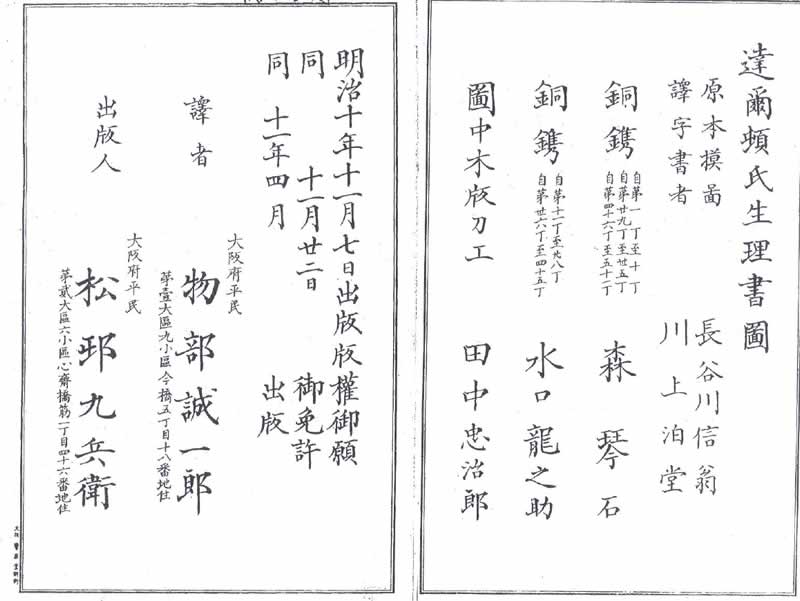 達爾頓氏生理書圖
原本摸畵 長谷川信翁
譯字書者 川上泊堂
銅鐫 自第一丁至十丁 自第廿九丁至卅五丁 自第四十六丁至五十二丁 森琴石
銅鐫 自第十一丁至廿八丁 自第卅六丁至四十五丁 水口龍之助
圖中木版刀工 田中忠治郎
明治十年十一月七日出版版權御願
同 十一月廿二日 御免許
同 十一年四月 出版
大阪府平民
譯者 物部誠一郎
第壹大區九小區今橋五丁目十八番地住
大阪府平民
出版人 松邨九兵衛
第貳大區六小區心齋橋筋一丁目四十六番地住